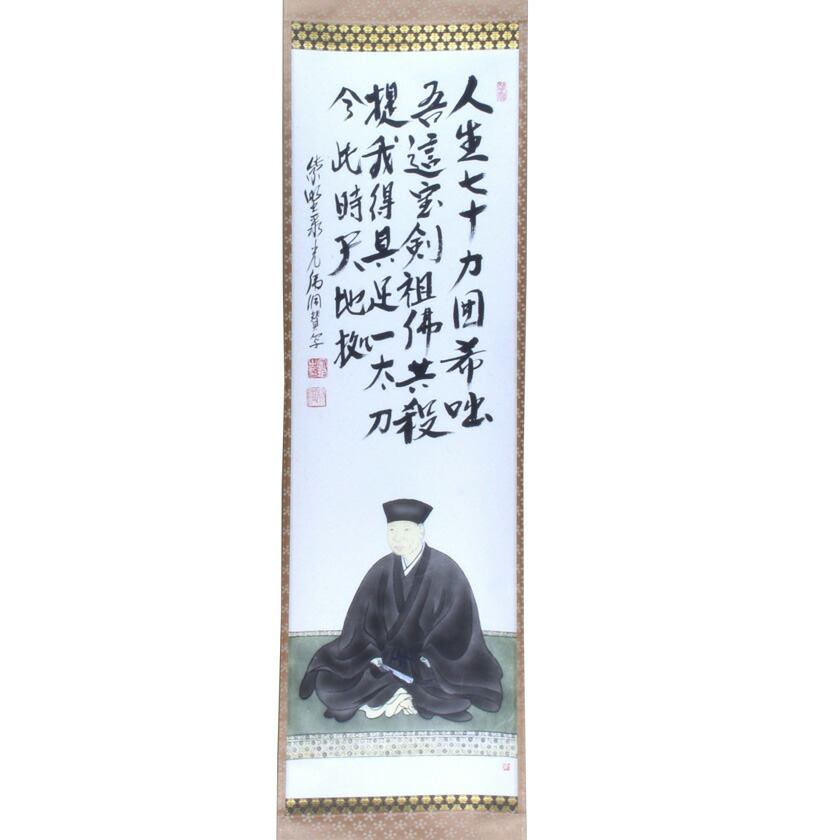 人生七十力囲希咄
吾這宝剣祖佛共殺
提我得具足一太刀
今此時天地抛
紫野